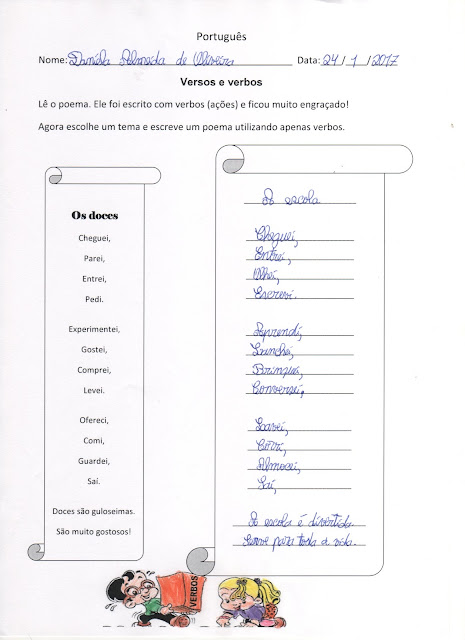 Português
Nome: Daniela Almeida de Oliveira Data: 24/1/2017
Versos e verbos
Lê o poema. Ele foi escrito com verbos (ações) e ficou muito engraçado!
Agora escolhe um tema e escreve um poema utilizando apenas verbos.
Os doces
Cheguei,
Parei,
Entrei,
Pedi.
Experimentei,
Gostei,
Comprei,
Levei.
Ofereci,
Comi,
Guardei,
Saí.
Doces são guloseimas.
São muito gostosos!
A escola
Cheguei,
Entrei,
Olhei,
Escrevi.
Aprendi,
Lanchei,
Brinquei,
Conversei,
Lavei,
Corri,
Almocei,
Saí,
A escola é divertida.
Serve para toda a vida.
VERBOS